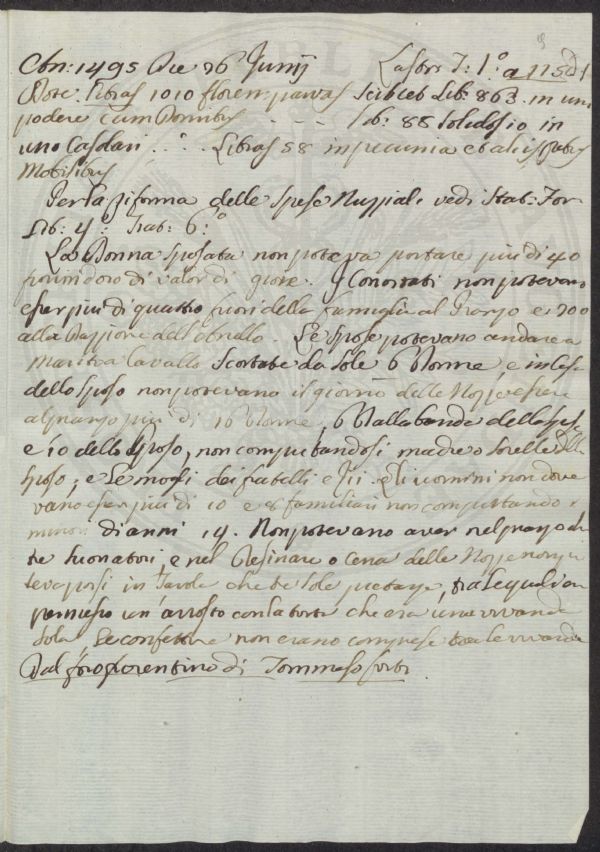 An: 1495 Die 26 Junij Lastri T: 1.° a 115
Dote Libras 1010 floren: parvas Scilicet Lib: 863. in uno
podere cum Domibus - - - Lib: 88 Solidos 10 in
uno Casolari . . . Libras 58 in pecunia et aliis rebus
Mobilibus
Per la riforma delle Spese Nuzziali vedi Stat: Fior
Lib: 4: Trat: 6.°
La Donna Sposata non poteva portare più di 40
fiorini d'oro di valor di gioie. I Convitati non potevano
esser più di quattro fuori della famiglia al Pranzo e 200
alla Dazzione dell'Anello. Le Spose potevano andare a
Marito a Cavallo Scortate da Sole 6 Donne e in Casa
dello Sposo non potevano il giorno delle Nozze essere
al pranzo più di 16 Donne, 6 dalla banda della Sposa
e 10 dello Sposo, non computandosi madre o Sorelle dello
Sposo; e Le mogli dei fratelli e Zii. Gli uomini non dove
vano esser più di 10 e 8 familiari non computando i
minori di anni 14. Non potevano aver nel pranzo al
tre Suonatori, e nel Desinare o Cena delle Nozze non po
teva porsi in Tavola che tre sole pietanze, tra le quali era
permesso un arrosto con la torta che era una vivanda
Sola Le confetture non erano comprese tra le vivande
Dal foro fiorentino di Tommaso Forti